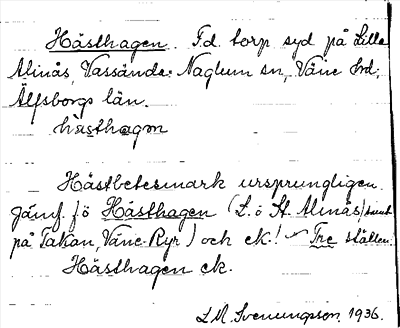 Hästhagen. F.d. torp syd på Lilla
Almås, Vassända-Naglum sn, Väne hrd,
Älfsborgs län.
hästhagɷn
Hästbetesmark ursprungligen.
Jämf. fö Hästhagen (L. o St. Almås) samt
på Takan, Väne-Ryr) och ek! Tre ställen.
Hästhagen ek.
L M. Svenungsson 1936.